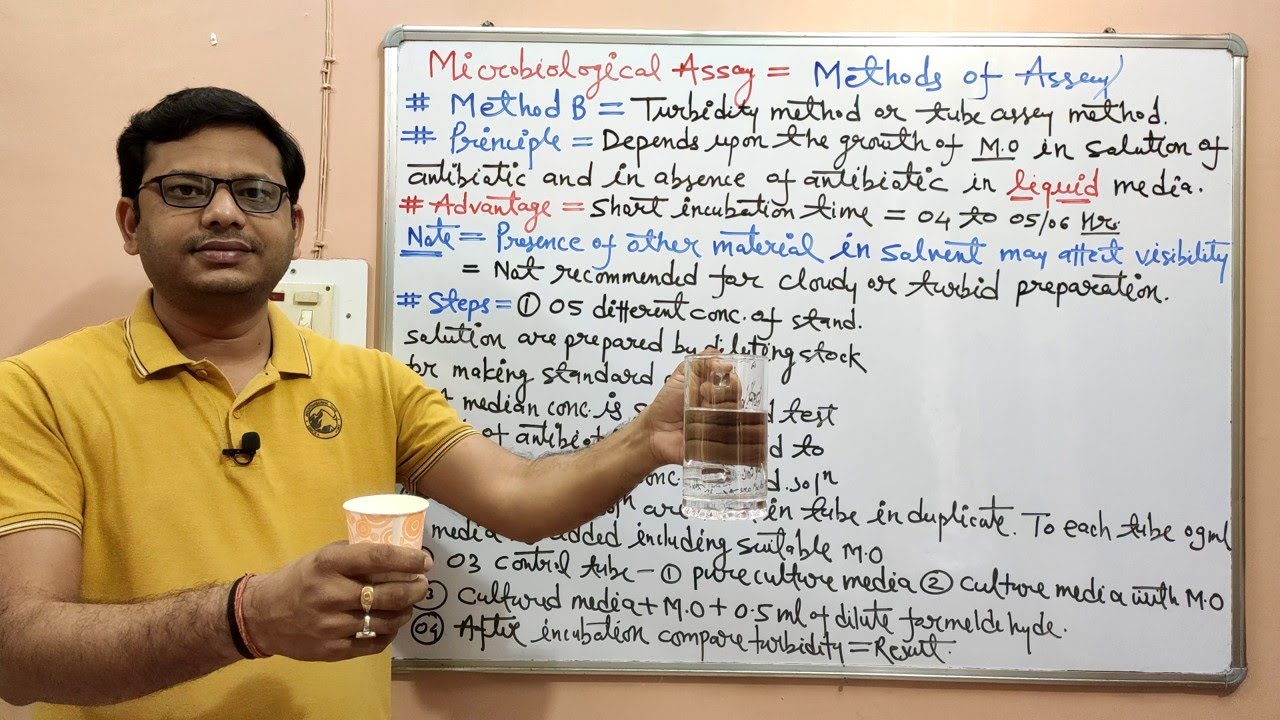 Microbiological Assay = Methods of Assay
# Method B = Turbidity method or tube assay method.
# Principle = Depends upon the growth of M.O in solution of
antibiatic and in absence of antibiotic in liquid media.
# Advantage = Short incubation time = 04 to 05/06 Hr.
Note = Presence of other material in solvent may affect visibility
= Not recommended for cloudy or turbid preparation.
# Steps = ① 05 different conc. of stand.
solution are prepared by diluting stock
for making standard
median conc. is test
of antibiot to
conc. d. solⁿ
are in tube in duplicate. To each tube 09ml
media added including suitable M.O
03 control tube - ① pure culture media ② Culture media with M.O
③ Cultured media + M.O + 0.5 ml of dilute formeldehyde.
04 After incubation compare turbidity = Result.